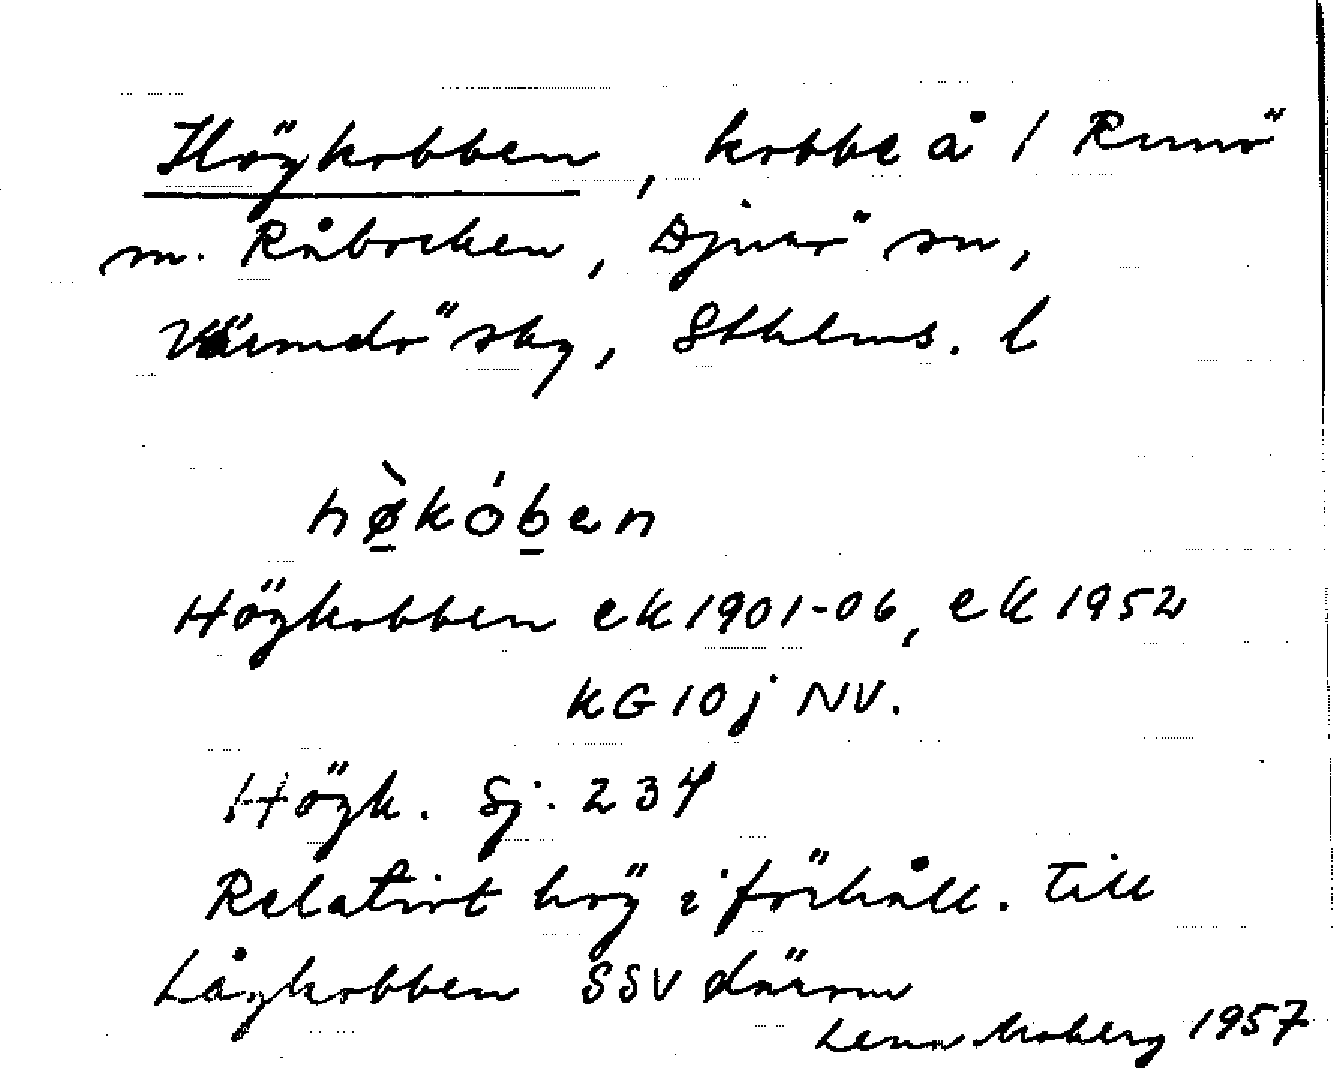 Högkobben, kobbe å 1 Runö
m. Råbocken, Djurö sn,
Värmdö skg, Sthlms. l
hø̀kóben
Högkobben ek 1901-06, ek 1952
KG 10 j NV.
Högk. Sj. 234
Relativt hög i förhåll. till
Lågkobben SSV därom
Lena Moberg 1957